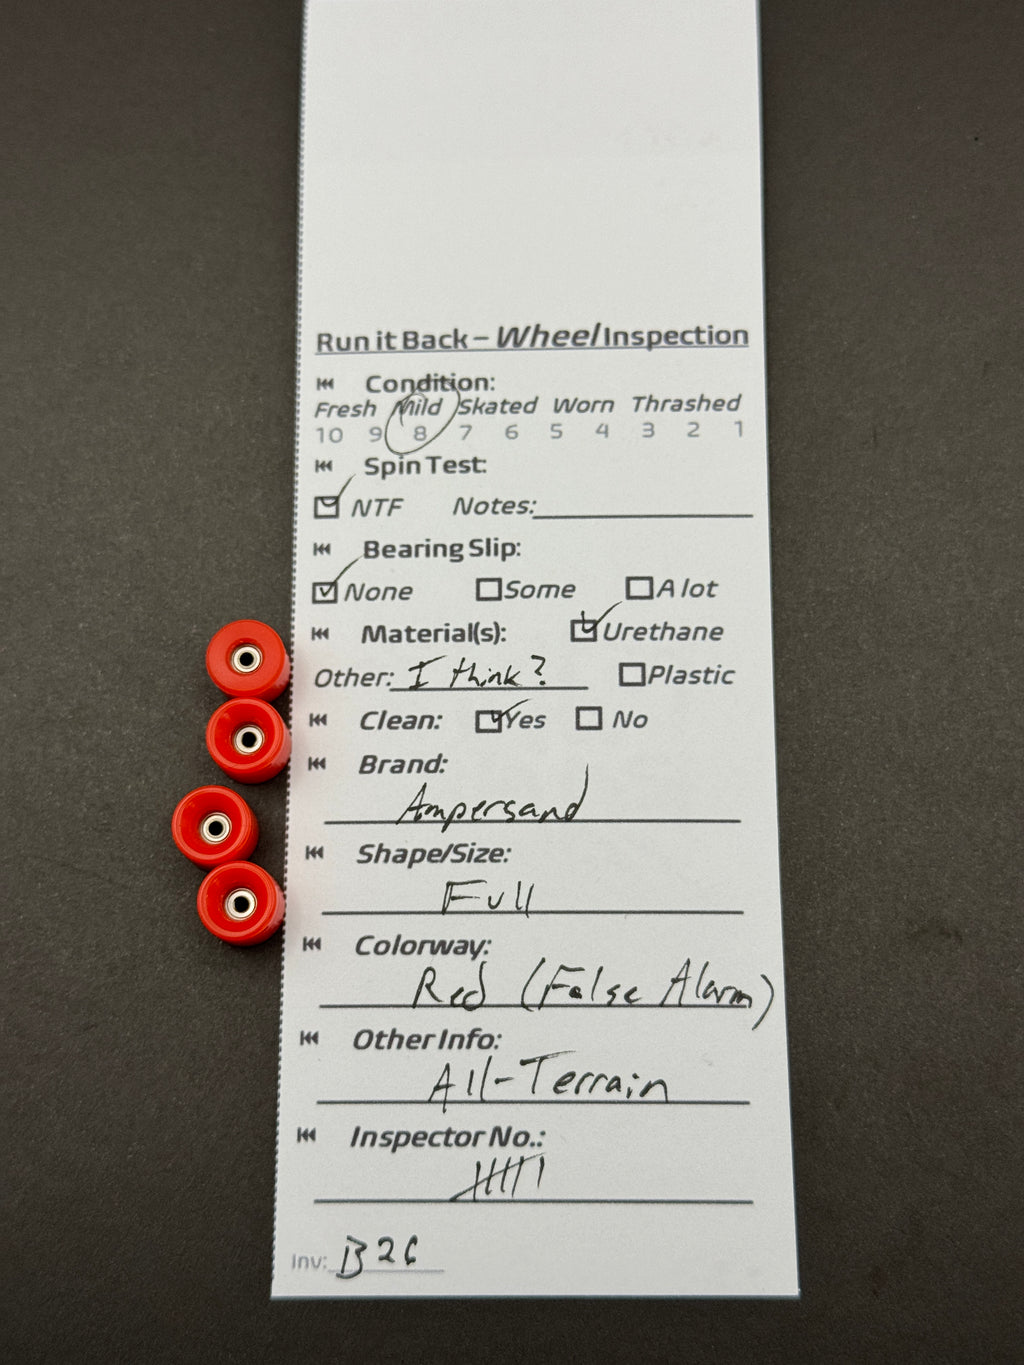 Run it Back – Wheel Inspection
Condition:
Fresh Mild Skated Worn Thrashed
10 9 8 7 6 5 4 3 2 1
Spin Test:
NTF Notes:
Bearing Slip:
None Some A lot
Material(s): Urethane
Other: I think? Plastic
Clean: Yes No
Brand:
Ampersand
Shape/Size:
Full
Colorway:
Red (False Alarm)
Other Info:
All-Terrain
Inspector No.:
Inv: B26